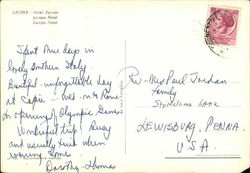 LATINA - Hotel Europa
Europa Hotel
Europa Hotel
Spent five days in
lovely Southern Italy.
Beautiful - unforgettable day
at Capri - and into Rome
for opening Olympic Games
Wonderful trip! Busy
and usually tired when
evening comes.
Dorothy - Thomas
Rev - Mrs Paul Jordan
family
Lane
LEWISBURG, PENNA.
U.S.A.